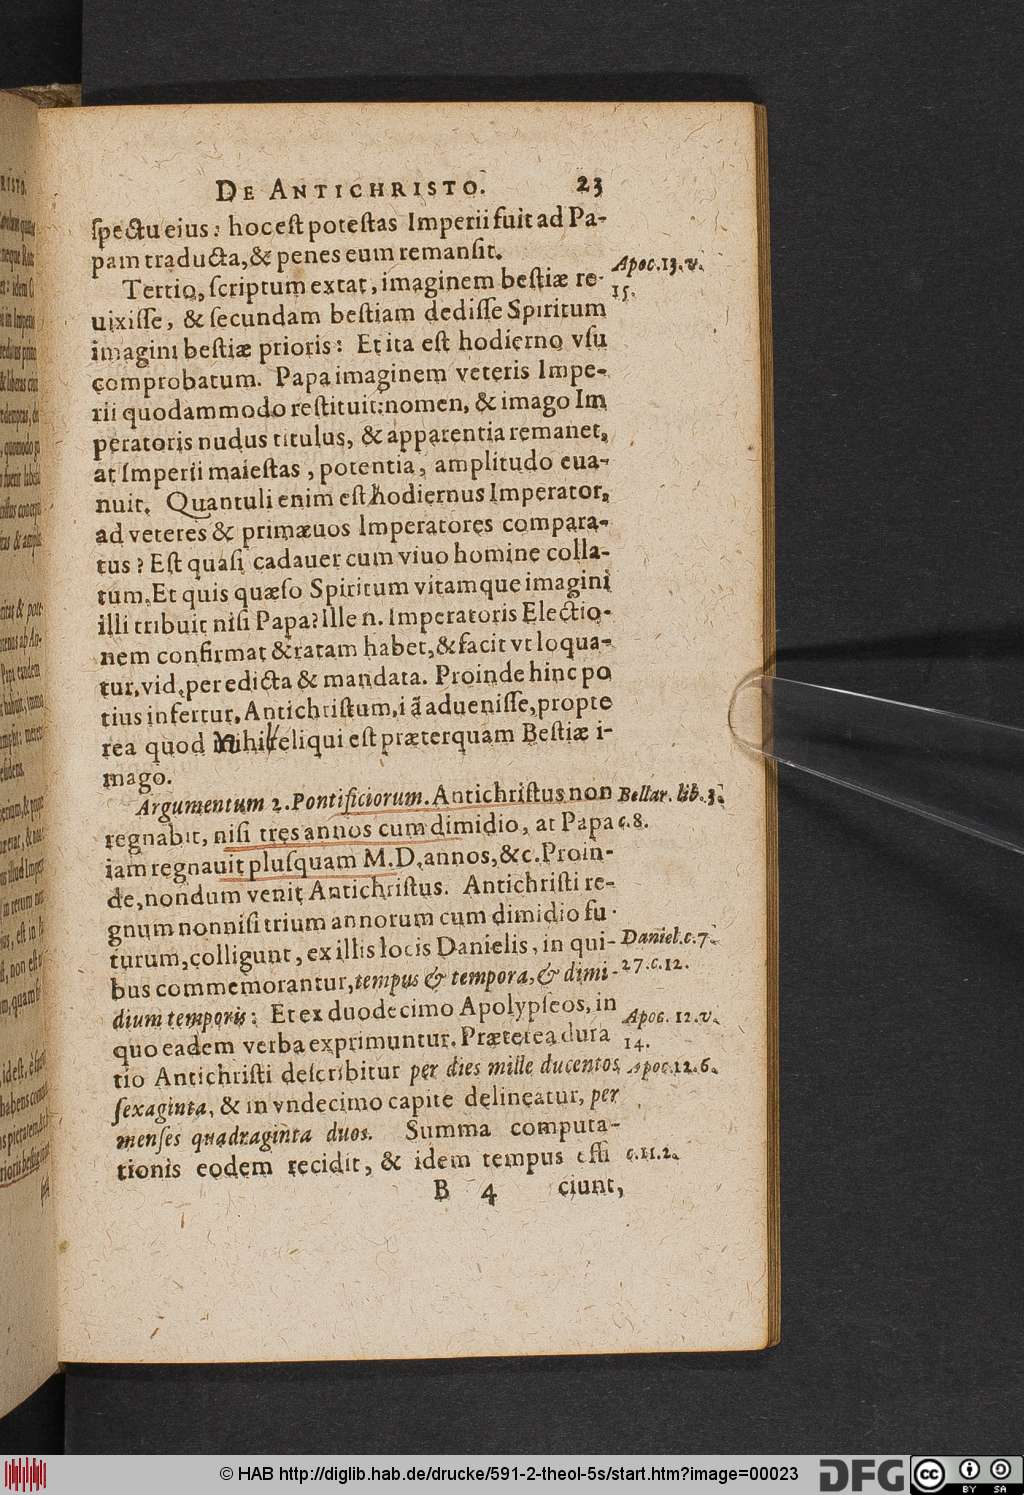 DE ANTICHRISTO. 23
ſpectu eius: hoc eſt poteſtas Imperii fuit ad Pa-
pam traducta, & penes eum remanſit.
Tertio, ſcriptum extat, imaginem beſtiæ re-
Apoc.13.v.
15.
uixiſſe, & ſecundam beſtiam dediſſe Spiritum
imagini beſtiæ prioris: Et ita eſt hodierno vſu
comprobatum. Papa imaginem veteris Impe-
rii quodammodo reſtituit: nomen, & imago Im
peratoris nudus titulus, & apparentia remanet,
at Imperii maieſtas, potentia, amplitudo eua-
nuit. Quantuli enim eſt hodiernus Imperator,
ad veteres & primæuos Imperatores compara-
tus? Eſt quaſi cadauer cum viuo homine colla-
tum. Et quis quæſo Spiritum vitamque imagini
illi tribuit niſi Papa? Ille n. Imperatoris Electio-
nem confirmat & ratam habet, & facit vt loqua-
tur, vid. per edicta & mandata. Proinde hinc po
tius infertur, Antichriſtum, iã adueniſſe, propte
rea quod Nihil reliqui eſt præterquam Beſtiæ i-
mago.
Argumentum 2. Pontificiorum. Antichriſtus non
Bellar. lib. 3.
regnabit, niſi tres annos cum dimidio, at Papa
c.8.
iam regnauit pluſquam M.D. annos, &c. Proin-
de, nondum venit Antichriſtus. Antichriſti re-
gnum nonniſi trium annorum cum dimidio fu-
turum, colligunt, ex illis locis Danielis, in qui-
Daniel.c.7.
bus commemorantur, tempus & tempora, & dimi-
27.c.12.
dium temporis: Et ex duodecimo Apolypſeos, in
Apoc. 12.v.
quo eadem verba exprimuntur. Præterea dura
14.
tio Antichriſti deſcribitur per dies mille ducentos
Apoc.12.6.
ſexaginta, & in vndecimo capite delineatur, per
menſes quadraginta duos. Summa computa-
tionis eodem recidit, & idem tempus effi
c.11.2.
B 4 ciunt,
© HAB http://diglib.hab.de/drucke/591-2-theol-5s/start.htm?image=00023
DFG
cc BY SA